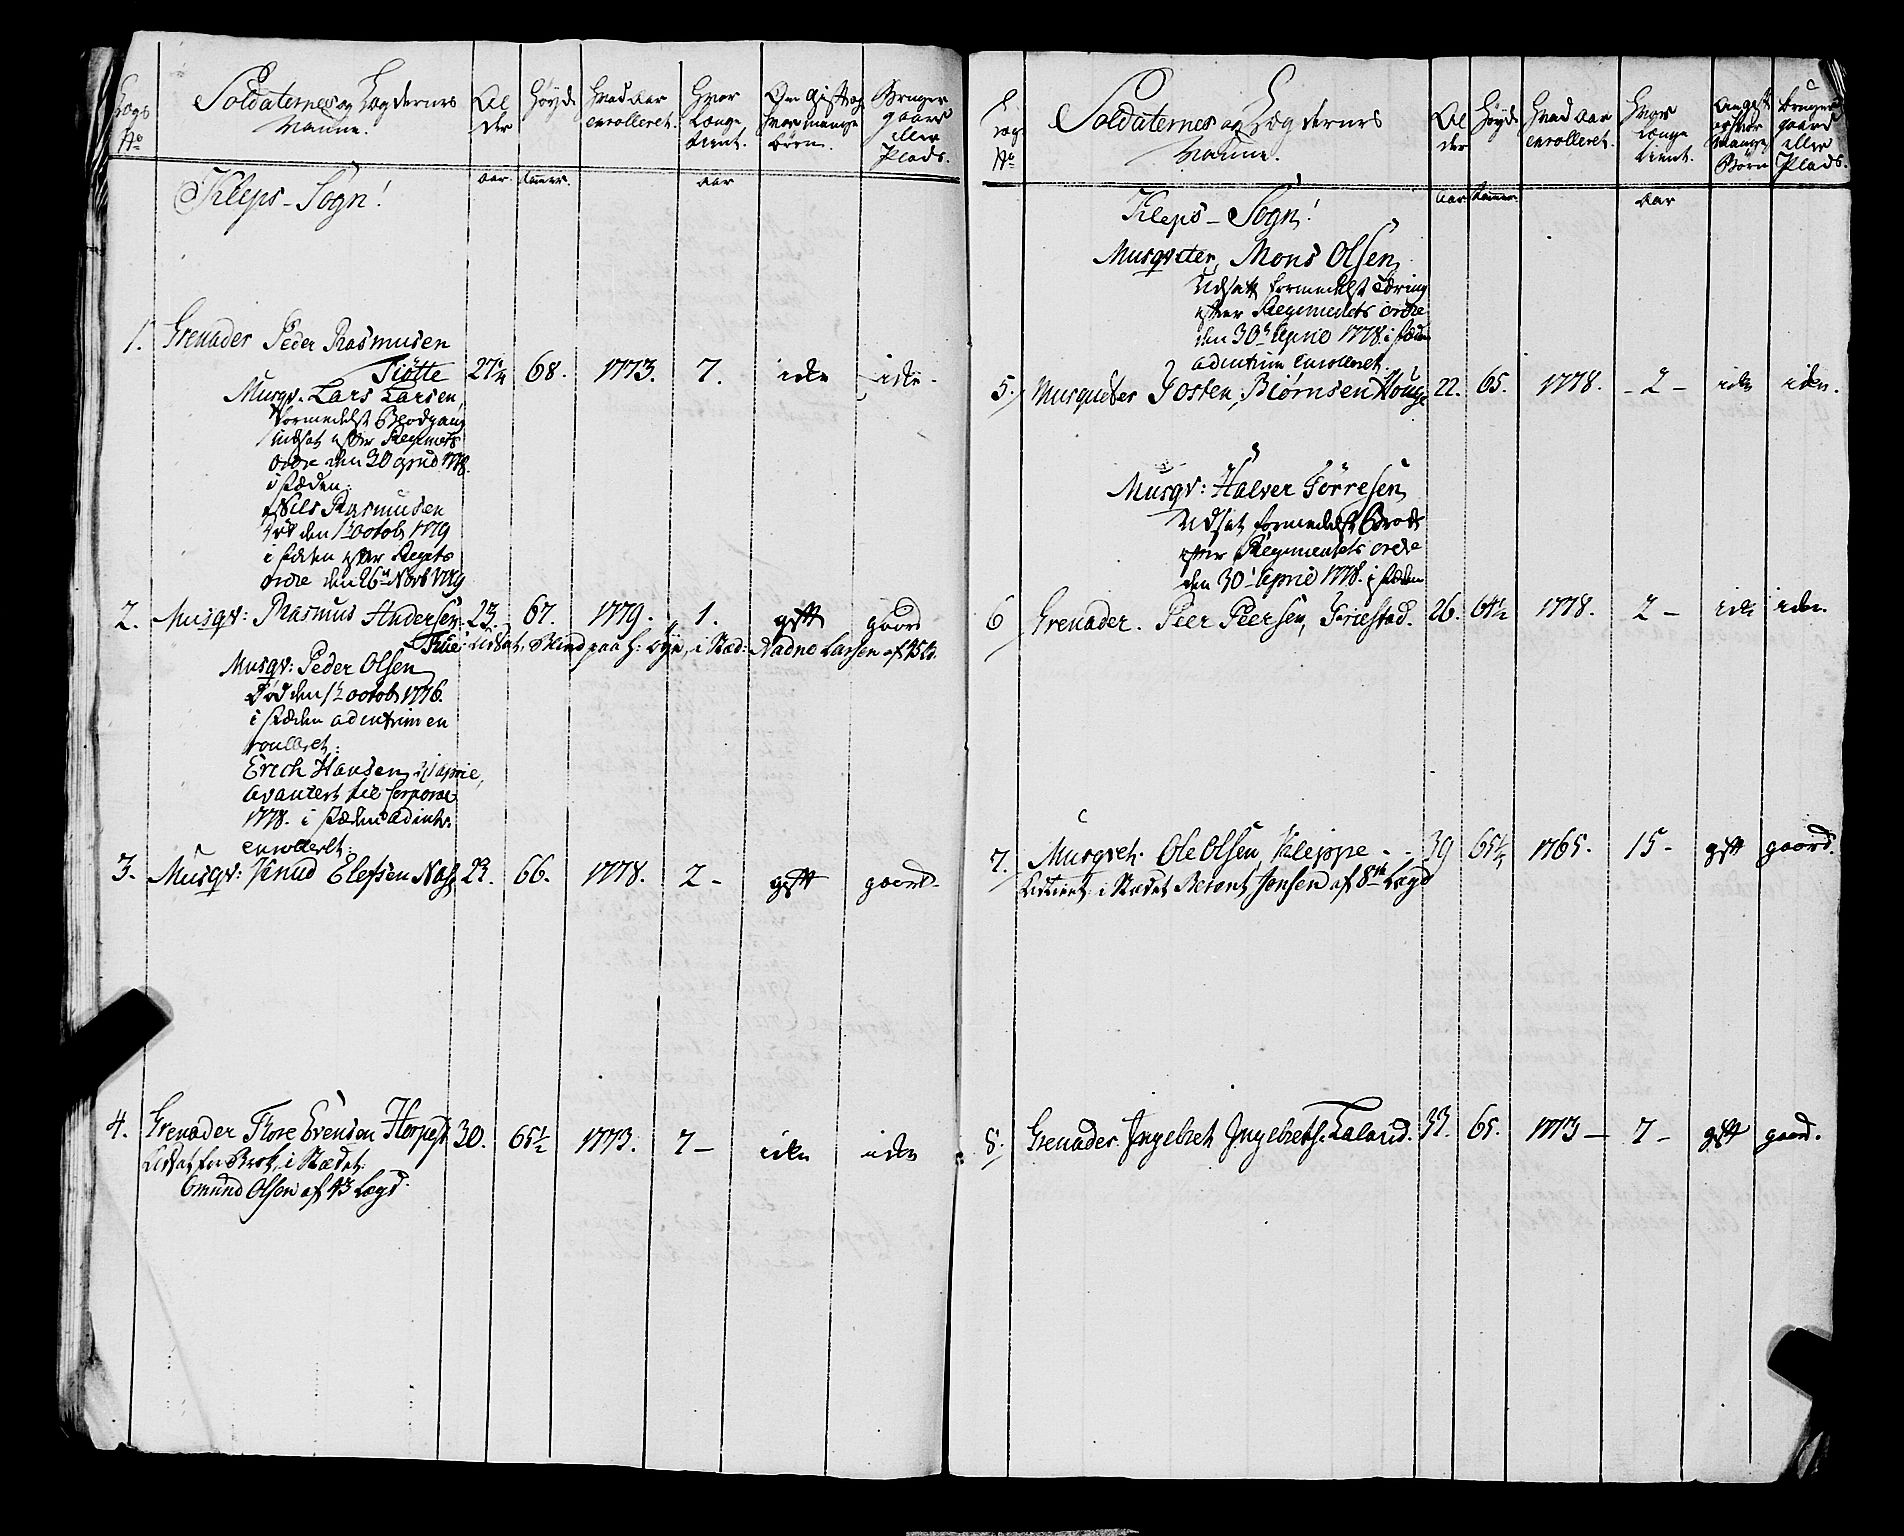 Lægs No
Soldaternes og Lægdernes Nafne.
Alder
Høyde
Hvad Aar enrolleret.
Hvor Længe tient.
Om Gift og hvor mange Børn.
Bruger gaard eller Plads.
aar. tomer. aar
Kleps-Sogn!
1. Grenader Peder Rasmusen
Tiøtte 27 1/4 68. 1773. 7. icke icke.
Musqv. Lars Larsen,
formedelst Blodgang
udsat efter Regimets
Ordre den 30 April 1778.
i stæden:
Nils Rasmusen
død den 1te octob 1779
i stæden efter Regits
ordre den 26de Novb 1779
2. Musqv: Rasmus Andersen 23. 67. 1779. 1. gift gaard
udsat, blind paa h: Øye, i Stæd: Aadne Larsen af
Musqv: Peder Olsen
Død den 1te octob 1776.
i stæden adintrim en
roulleret:
Erich Hansen, april,
Avansert til Corporal
1778. i stæden adintr.
enrolleret:
3. Musqv: Knud Elefsen 23. 66. 1778. 2- gift gaard.
4. Grenader Tore Evensen 30. 65 1/2 1773. 7- icke icke
Udsat for Brok, i Stædet
Omund Olsen af 43 Lægd.
Læg No
Soldaternes og Lægdernes Nafne.
Alder
Høyde
Hvad Aar enrolleret.
Hvor længe tient.
Om gift og hvor Mange Børn
Bruger gaard eller Plads.
Aar Tommer. Aar
Kleps-Sogn!
Musqveter, Mons Olsen,
Udsatt formedelst Tæring
efter Regimentets ordre
den 30te April 1778. i stæden
adintrim Enrolleret
5. Musqueter Josten, Biørnsen Houge 22. 65. 1778. -2- icke icke.
Musqv: Halver Tørresen,
Udsat formedelst Brok
efter Regimentets ordre
den 30te April 1778. i stæden
6 Grenader. Peer Peersen, Friestad. 26. 64 1/2 1778. 2- icke icke.
7. Musqvet. Ole Olsen, Kleppe - - 39 65 1/2 1765. 15- gift gaard.
Udtient i Stædet Berent Jonsen af 8de Lægd
8. Grenader. Ingebret Ingebretsen Laland. 37. 65. 1773- 7- gift gaard.